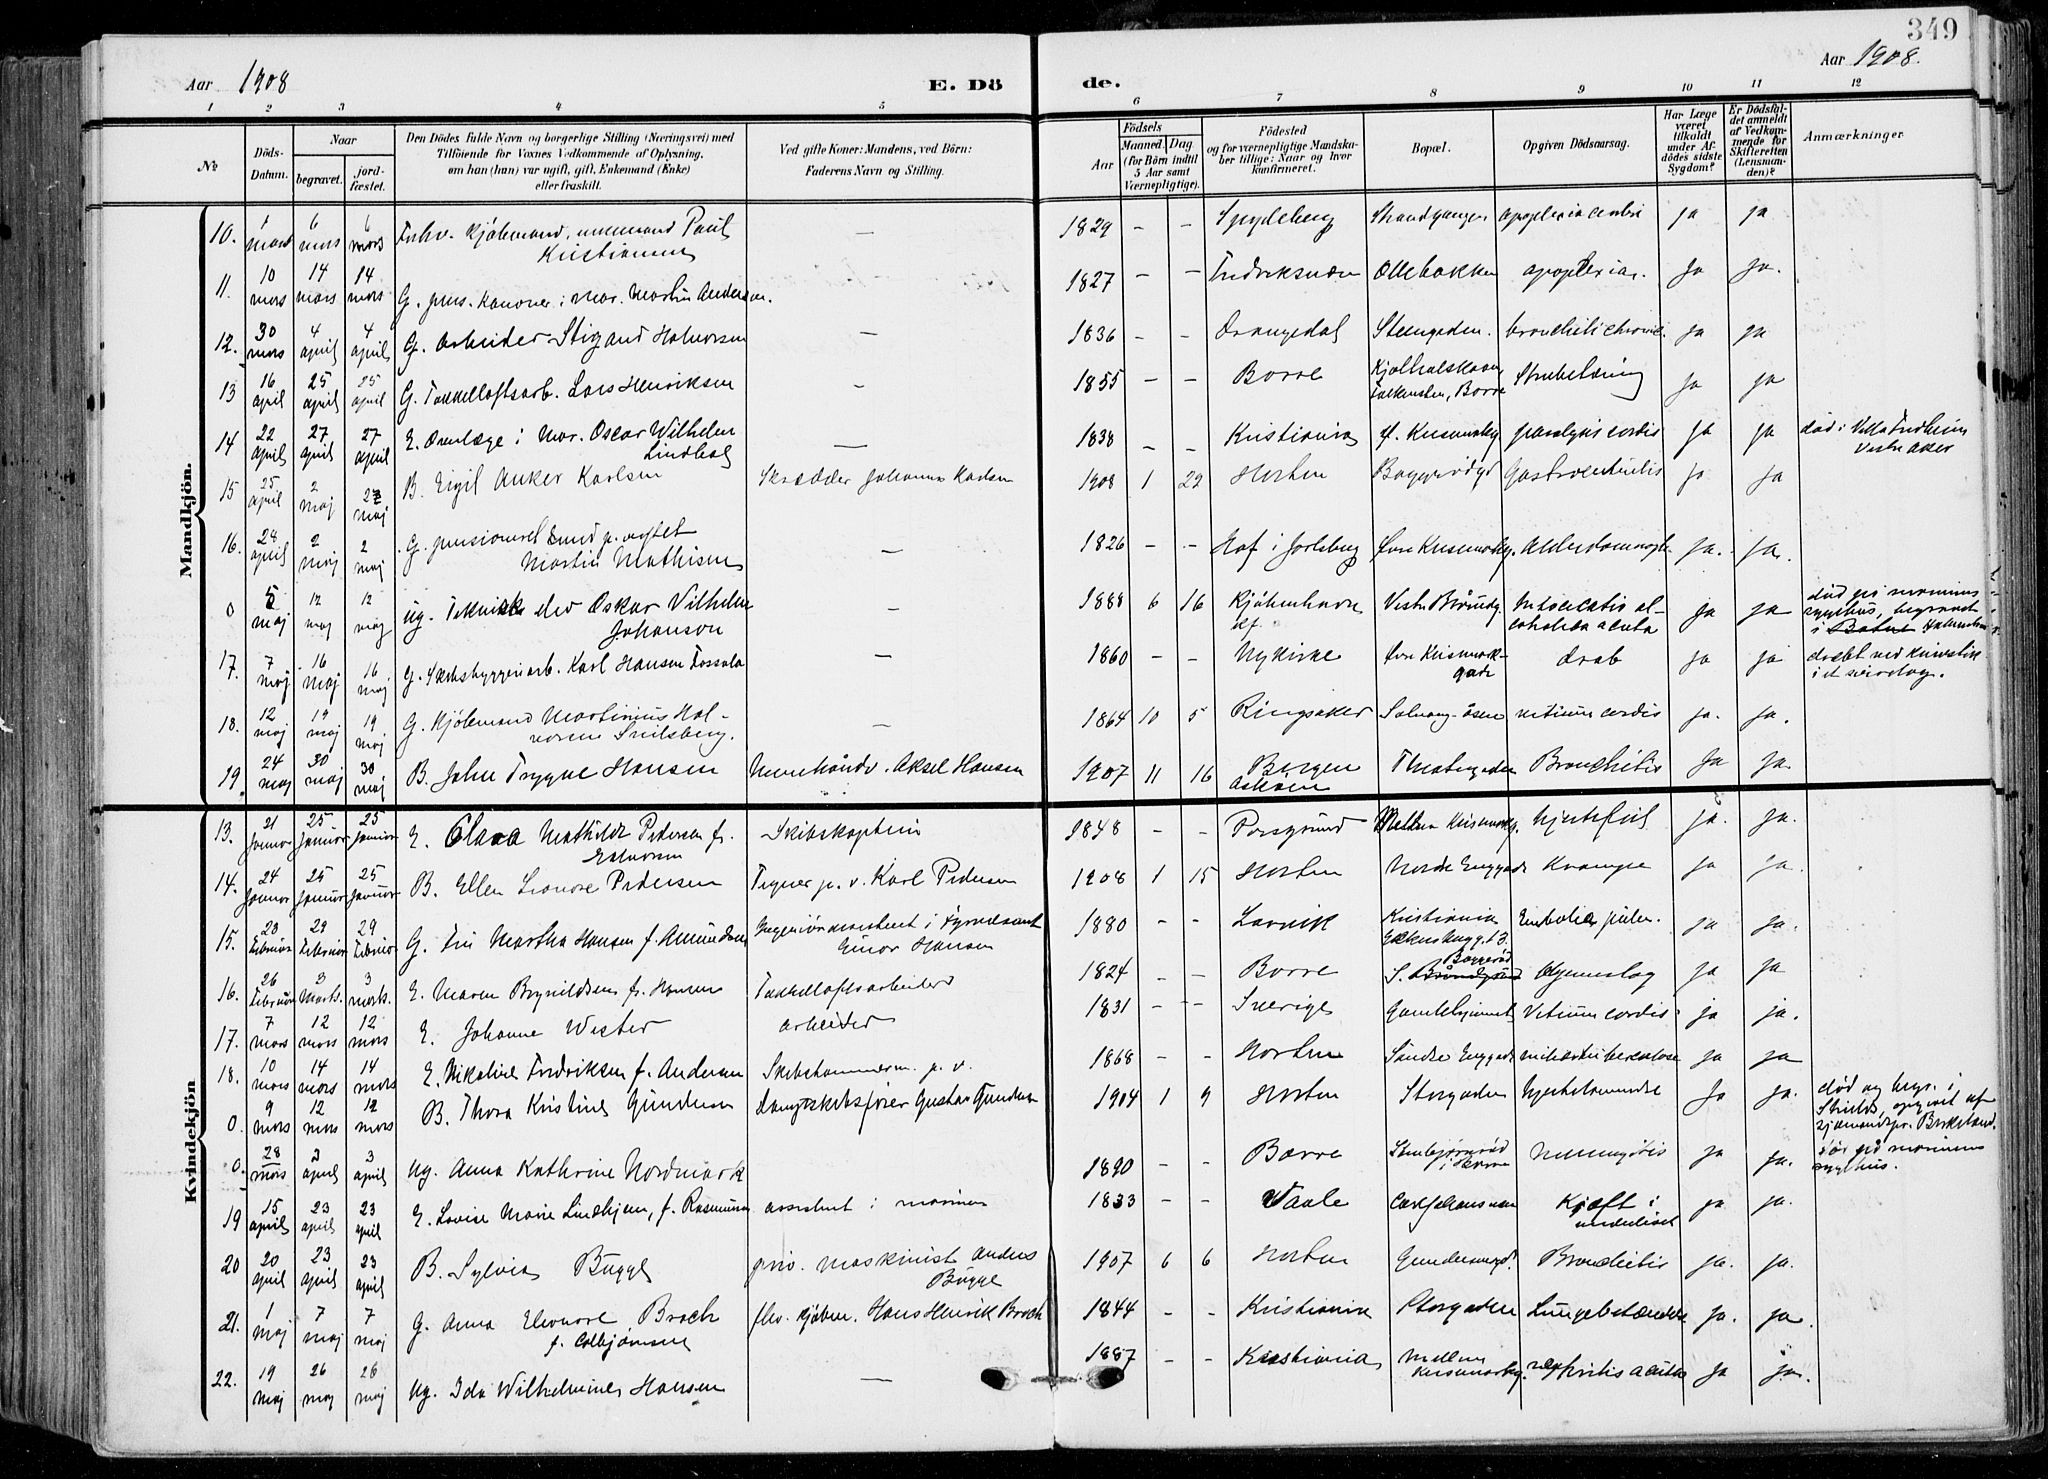 349
Aar 1908
E. Döde.
Aar 1908.
1 2 3 4 5 6 7 8 9 10 11 12
No
Döds-Datum.
Naar
begravet.
jordfæstet.
Den Dödes fulde Navn og borgerlige Stilling (Næringsvei) med
Tilföiende for Voxnes Vedkommende af Oplysning,
om han (hun) var ugift, gift, Enkemand (Enke)
eller fraskilt.
Ved gifte Koner: Mandens, ved Börn:
Faderens Navn og Stilling.
Aar
Födsels
Maaned. Dag
(for Börn indtil 5 Aar samt Værnepligtige).
Födested
og for værnepligtige Mandskaber tillige: Naar og hvor konfirmeret.
Bopæl.
Opgiven Dödsaarsag.
Har Læge været tilkaldt under Afdödes sidste Sygdom?
Er Dödsfaldet anmeldt af Vedkommende for Skifteretten (Lensmanden)?
Anmærkninger
Mandkjön.
10. mars 6 mars 6 mars kjøbmand, Paul Kristiansen — 1829 — — Spydeberg Strandgangen apoplexia cerebri ja ja
11. 10 mars 14 mars 14 mars G. pens. kanoner i mar. Martin Andersen. 1827 — — Fredriksværn Ollebakken apoplexia. Ja Ja.
12. 30 mars 4 april 4 april G. arbeider Stigand Halvorsen — 1836 — — Drangedal Steengaden. bronchiti chronic. ja ja
13 16 april 25 april 25 april G. Takkelloftsarb. Lars Henriksen — 1855 — — Borre Falkensten, Borre Strubetæring ja ja
14 22 april 27 april 27 april E. Overlæge i Mar. Oscar Wilhelm Lindbol — 1838 — — Kristiania paralysis cordis ja ja død i Vestre Aker
15 25 april 2 maj 2 maj B. Eigil Anker Karlsen Skrædder Johannes Karlsen 1908 1 29 Horten Gastroenteritis ja ja
16. 28 april 2 maj 2 maj G. pensioneret Martin Mathisen — 1826 — — Hof i Jarlsberg Øvre Keisemarksg. ja. ja.
0 5 maj 12 maj 12 maj ug. Teknisk elev Oskar Vilhelm Johanson — 1888 6 16 Kjøbenhavn Vestre ja ja død på marinens sygehus, begravet i
17. 7 maj 16 maj 16 maj G. Skibsbyggeriarb. Karl Hansen Fossala — 1860 — — Nykirke gade drab ja ja dræbt ved knivstik i et
18. 12 maj 19 maj 19 maj G. Kjøbmand Martinius Halvorsen — 1864 10 5 Ringsaker vitium cordis ja. ja.
19. 24 maj 30 maj 30 maj B. John Trygve Hansen Aksel Hansen 1907 11 16 Bergen Askøen Theatergaden Bronchitis Ja Ja.
Kvindekjön
13. 21 Januar 25 Januar 25 Januar E. Clara Mathilde Pedersen f. Skibskaptein 1848 — — Porsgrund Mellem Hjertefeil ja. ja.
14. 24 Januar 25 Januar 25 Januar B. Ellen Leonore Pedersen Tegner p. v. Karl Pedersen 1908 1 15 Horten Nordre Enggade Krampe ja ja.
15. 23 Februar 29 Februar 29 Februar G. Martha Hansen f. Amundsen Ingeniørassistent i Fyrvæsenet Einar Hansen 1880 — — Larvik Kristiania Embolia pulm. ja ja.
16. 26 Februar 3 Marts. 3 marts. E. Maren Brynildsen f. Hansen Takkelloftsarbeider 1824 — — Borre Baggerød ja ja
17. 7 mars 12 mars 12 mars E. Johanne Wester arbeider 1831 — — Sverige Vitium cordis ja ja.
18. 10 mars 14 mars 14 mars E. Nikoline Fredriksen f. Andersen Skibstømmerm. p. v. 1868 — — Horten Søndre Enggade miliærtuberculose ja ja
0. 9 mars 12 mars 12 mars B. Thora Kristine Gundersen Dampskibsfører Gustav Gundersen 1904 1 9 Horten Storgaden Ja ja. død og begr. i Shields, opgivet af sjømandspr. Birkeland.
0. 28 mars 3 april 3 april ug. Anna Kathrine Nordmark 1890 — — Borre i Borre Meningitis ja ja. død på marinens sygehus.
19 15 april 23 april 23 april E. Lovise Marie Lindhjem, f. Rasmussen assistent i marinen 1833 — — Vaale Carljohansvern Kræft i underlivet ja ja.
20 20 april 23 april 23 april B. Sylvia Bugge priv. maskinist Anders Bugge 1907 6 6 Horten Bronchitis ja. ja.
21. 1 maj 7 maj 7 maj G. Anna Eleonore Broch f. kjøbm. Hans Henrik Broch 1844 — — Kristiania Storgaden Lungebetændelse ja. ja.
22. 19 maj 26 maj 26 maj ug. Ida Wilhelmine Hansen — 1887 — — Kristiania Mellem nephritis acuta ja ja.